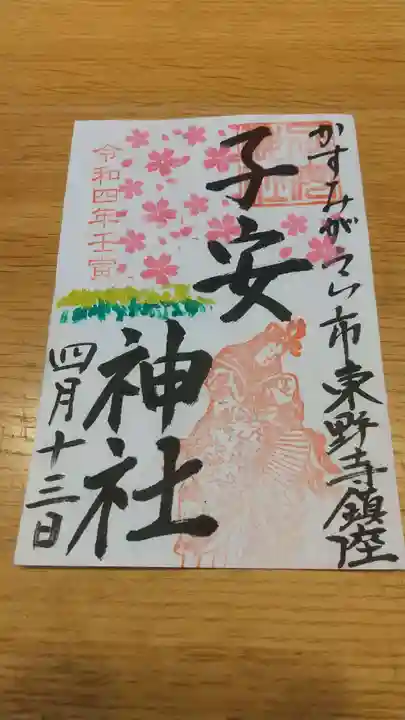 かすみがうら市東野寺鎮座
子安神社
令和四年壬寅
四月十三日